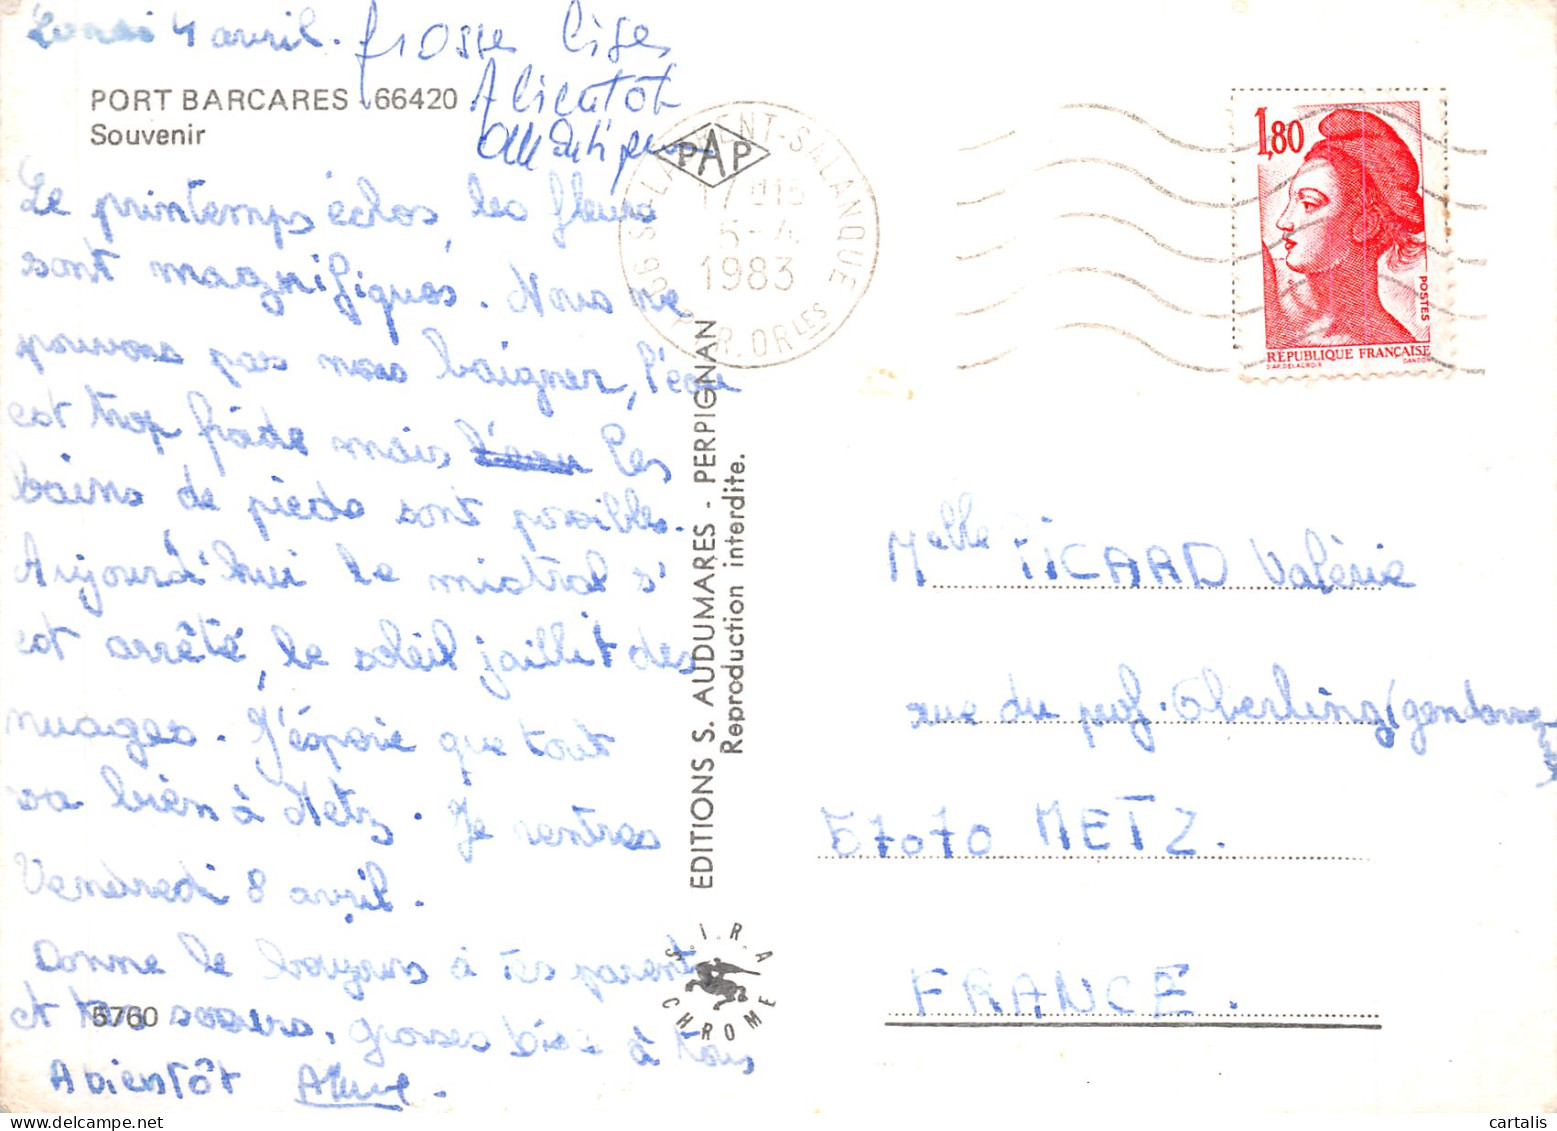 Lundi 4 avril. grosse bises
A bientôt
PORT BARCARES - 66420
Souvenir
Le printemps éclos, les fleurs
sont magnifiques. Nous ne
pouvons pas nous baigner, l'eau
est trop froide mais l'eau les
bains de pieds sont possibles.
Aujourd'hui le mistral s'
est arrêté, le soleil jaillit des
nuages. J'éspère que tout
va bien à Metz. Je rentres
Vendredi 8 avril.
Donne le bonjours à tes parents
et tes soeurs, grosses bises à tous
A bientôt
5760
EDITIONS S. AUDUMARES - PERPIGNAN
Reproduction interdite.
S.I.R.A
CHROME
PAP
66 ST LAURENT-SALANQUE
5-4
1983
P.R. ORLES
1,80
POSTES
RÉPUBLIQUE FRANÇAISE
D'AP. DELACROIX
GANDON
Melle PICARD Valérie
rue du prof. Oberling (gendarmerie
57070 METZ.
FRANCE.
cartalis